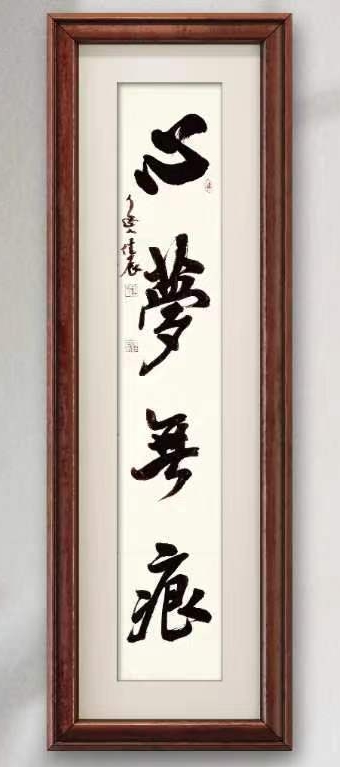 心夢無痕